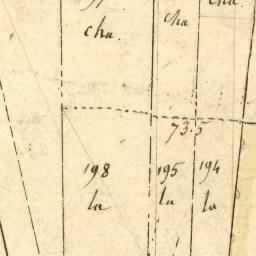 cha.
cha
cha.
73.5
198
la
195
la
194
la